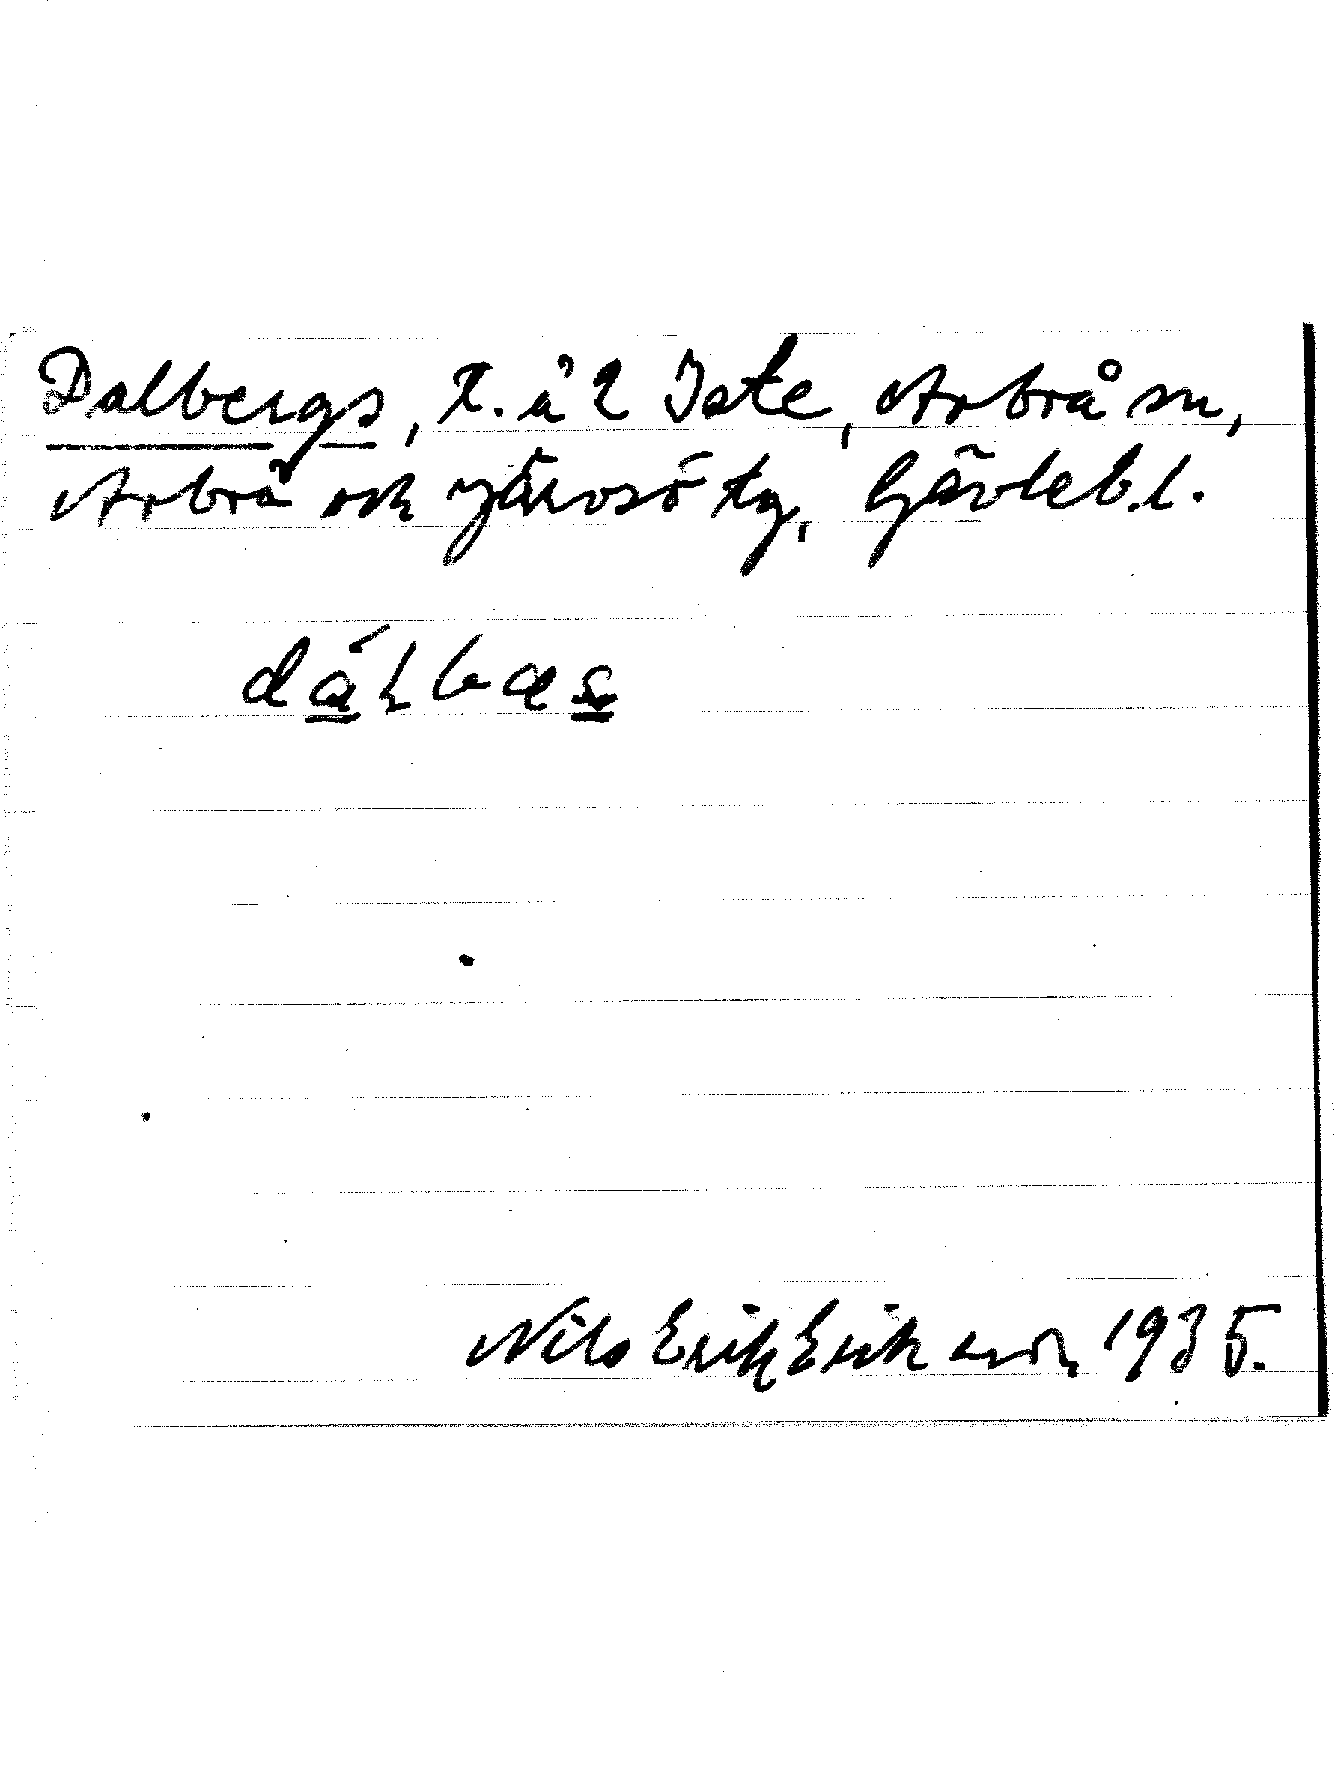 Dalbergs, X. å 2 Iste, Arbrå sn,
Arbrå och Järvsö tg, Gävleb.l.
dálbæs
Nils Erik Eriksson 1935.